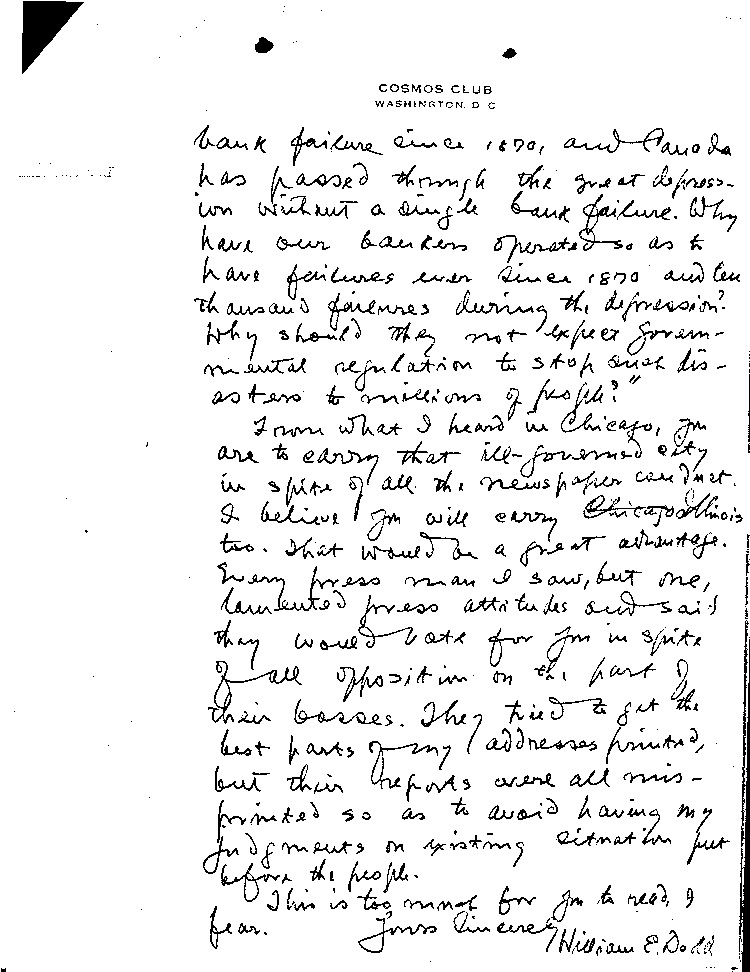 COSMOS CLUB
WASHINGTON, D C
bank failure since 1870, and Canada
has passed through the great depress-
ion without a single bank failure. Why
have our bankers operated so as to
have failures ever since 1870 and ten
thousand failures during the depression?
Why should they not expect govern-
mental regulation to stop such dis-
asters to millions of people?"
From what I heard in Chicago, you
are to carry that ill-governed city
in spite of all the newspaper conduct.
I believe you will carry Chicago Illinois
too. That would be a great advantage.
Every press man I saw, but one,
lamented press attitudes and said
they would vote for you in spite
of all opposition on the part of
their bosses. They tried to get the
best parts of my addresses printed,
but their reports were all mis-
printed so as to avoid having my
judgments on existing situation put
before the people.
This is too much for you to read, I
fear. Yours Sincerely
William E. Dodd